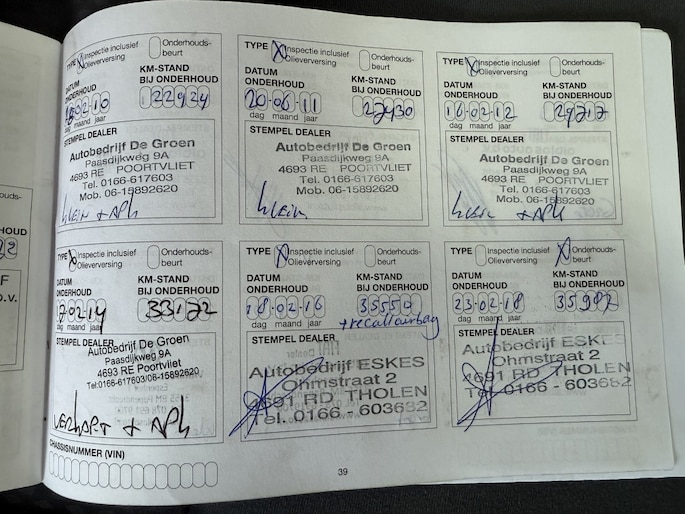 TYPE X Inspectie inclusief Olieverversing Onderhouds-beurt
DATUM ONDERHOUD KM-STAND BIJ ONDERHOUD
02 10 22924
dag maand jaar
STEMPEL DEALER
Autobedrijf De Groen
Paasdijkweg 9A
4693 RE POORTVLIET
Tel. 0166-617603
Mob. 06-15892620
klein + APK
TYPE X Inspectie inclusief Olieverversing Onderhouds-beurt
DATUM ONDERHOUD KM-STAND BIJ ONDERHOUD
20-06-11 27430
dag maand jaar
STEMPEL DEALER
Autobedrijf De Groen
Paasdijkweg 9A
4693 RE POORTVLIET
Tel. 0166-617603
Mob. 06-15892620
klein
TYPE X Inspectie inclusief Olieverversing Onderhouds-beurt
DATUM ONDERHOUD KM-STAND BIJ ONDERHOUD
16-02-12 29717
dag maand jaar
STEMPEL DEALER
Autobedrijf De Groen
Paasdijkweg 9A
4693 RE POORTVLIET
Tel. 0166-617603
Mob. 06-15892620
klein + APK
TYPE X Inspectie inclusief Olieverversing Onderhouds-beurt
DATUM ONDERHOUD KM-STAND BIJ ONDERHOUD
02 14 33172
dag maand jaar
STEMPEL DEALER
Autobedrijf De Groen
Paasdijkweg 9A
4693 RE Poortvliet
Tel:0166-617603/06-15892620
+ APK
TYPE X Inspectie inclusief Olieverversing Onderhouds-beurt
DATUM ONDERHOUD KM-STAND BIJ ONDERHOUD
18-02-16 35550
dag maand jaar
+ recall airbag
STEMPEL DEALER
Autobedrijf ESKES
Ohmstraat 2
4691 RD THOLEN
Tel. 0166 - 603682
TYPE Inspectie inclusief Olieverversing X Onderhouds-beurt
DATUM ONDERHOUD KM-STAND BIJ ONDERHOUD
23-02-18 35987
dag maand jaar
STEMPEL DEALER
Autobedrijf ESKE
Ohmstraat 2
4691 RD THOLEN
Tel. 0166 - 603682
CHASSISNUMMER (VIN)
39